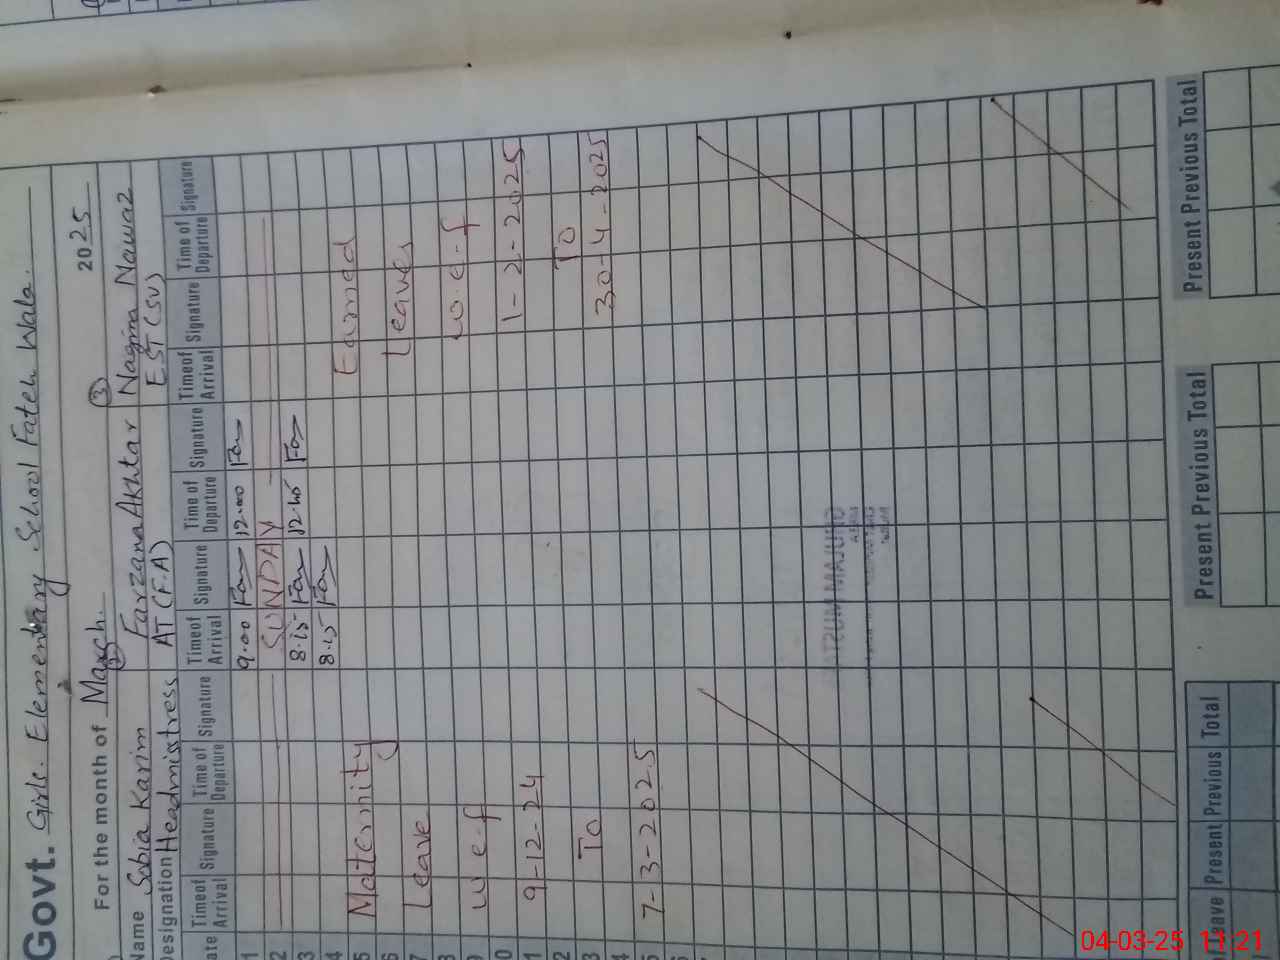 Govt. Girls. Elementary School Fateh Wala.
For the month of March. 2025
Name Sobia Karim
Designation Headmisstress
2
Farzana Akhtar
AT (F.A)
3
Nagina Nawaz
EST (SV)
Date Time of Arrival Signature Time of Departure Signature Time of Arrival Signature Time of Departure Signature Time of Arrival Signature Time of Departure Signature
1 9.00 Far 12.00 Far
2 SUNDAY
3 8.15 Far 12.45 Far
4 8.15 Far
Maternity
Leave
w e.f
9-12-24
To
7-3-2025
Earned
Leaves
w.e.f
1-2-2025
To
30-4-2025
Leave Present Previous Total
Present Previous Total
Present Previous Total
04-03-25 11:21